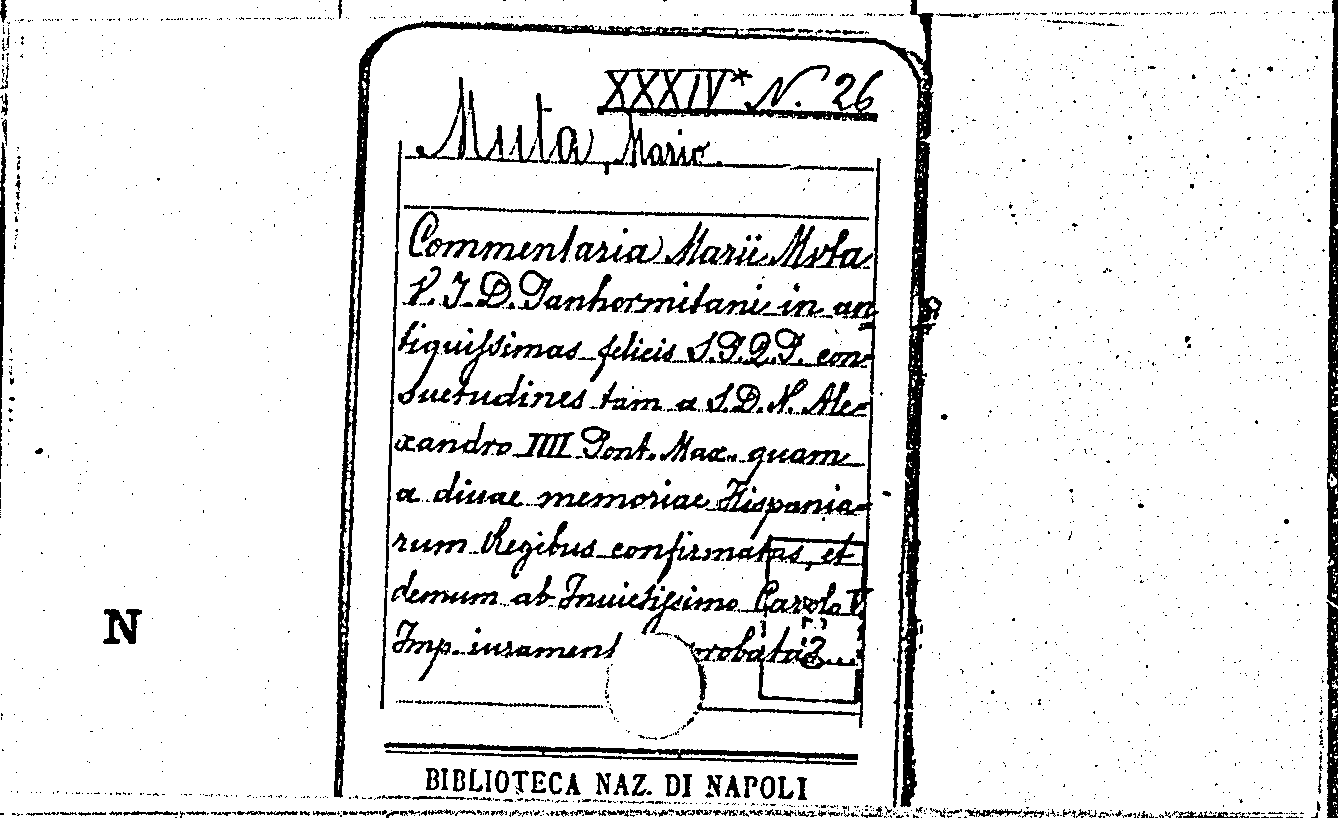 XXXIV* N. 26
Muta, Mario.
Commentaria Marii Mvta
V. I. D. Panhormitani in an
tiquissimas felicis S.P.Q.P. con-
suetudines tam a S.D.N. Ale-
xandro IIII Pont. Max. quam
a diuae memoriae Hispania-
rum Regibus confirmatas, et
demum ab Inuictissimo Carolo V
Imp. iurament probatas...
N
BIBLIOTECA NAZ. DI NAPOLI